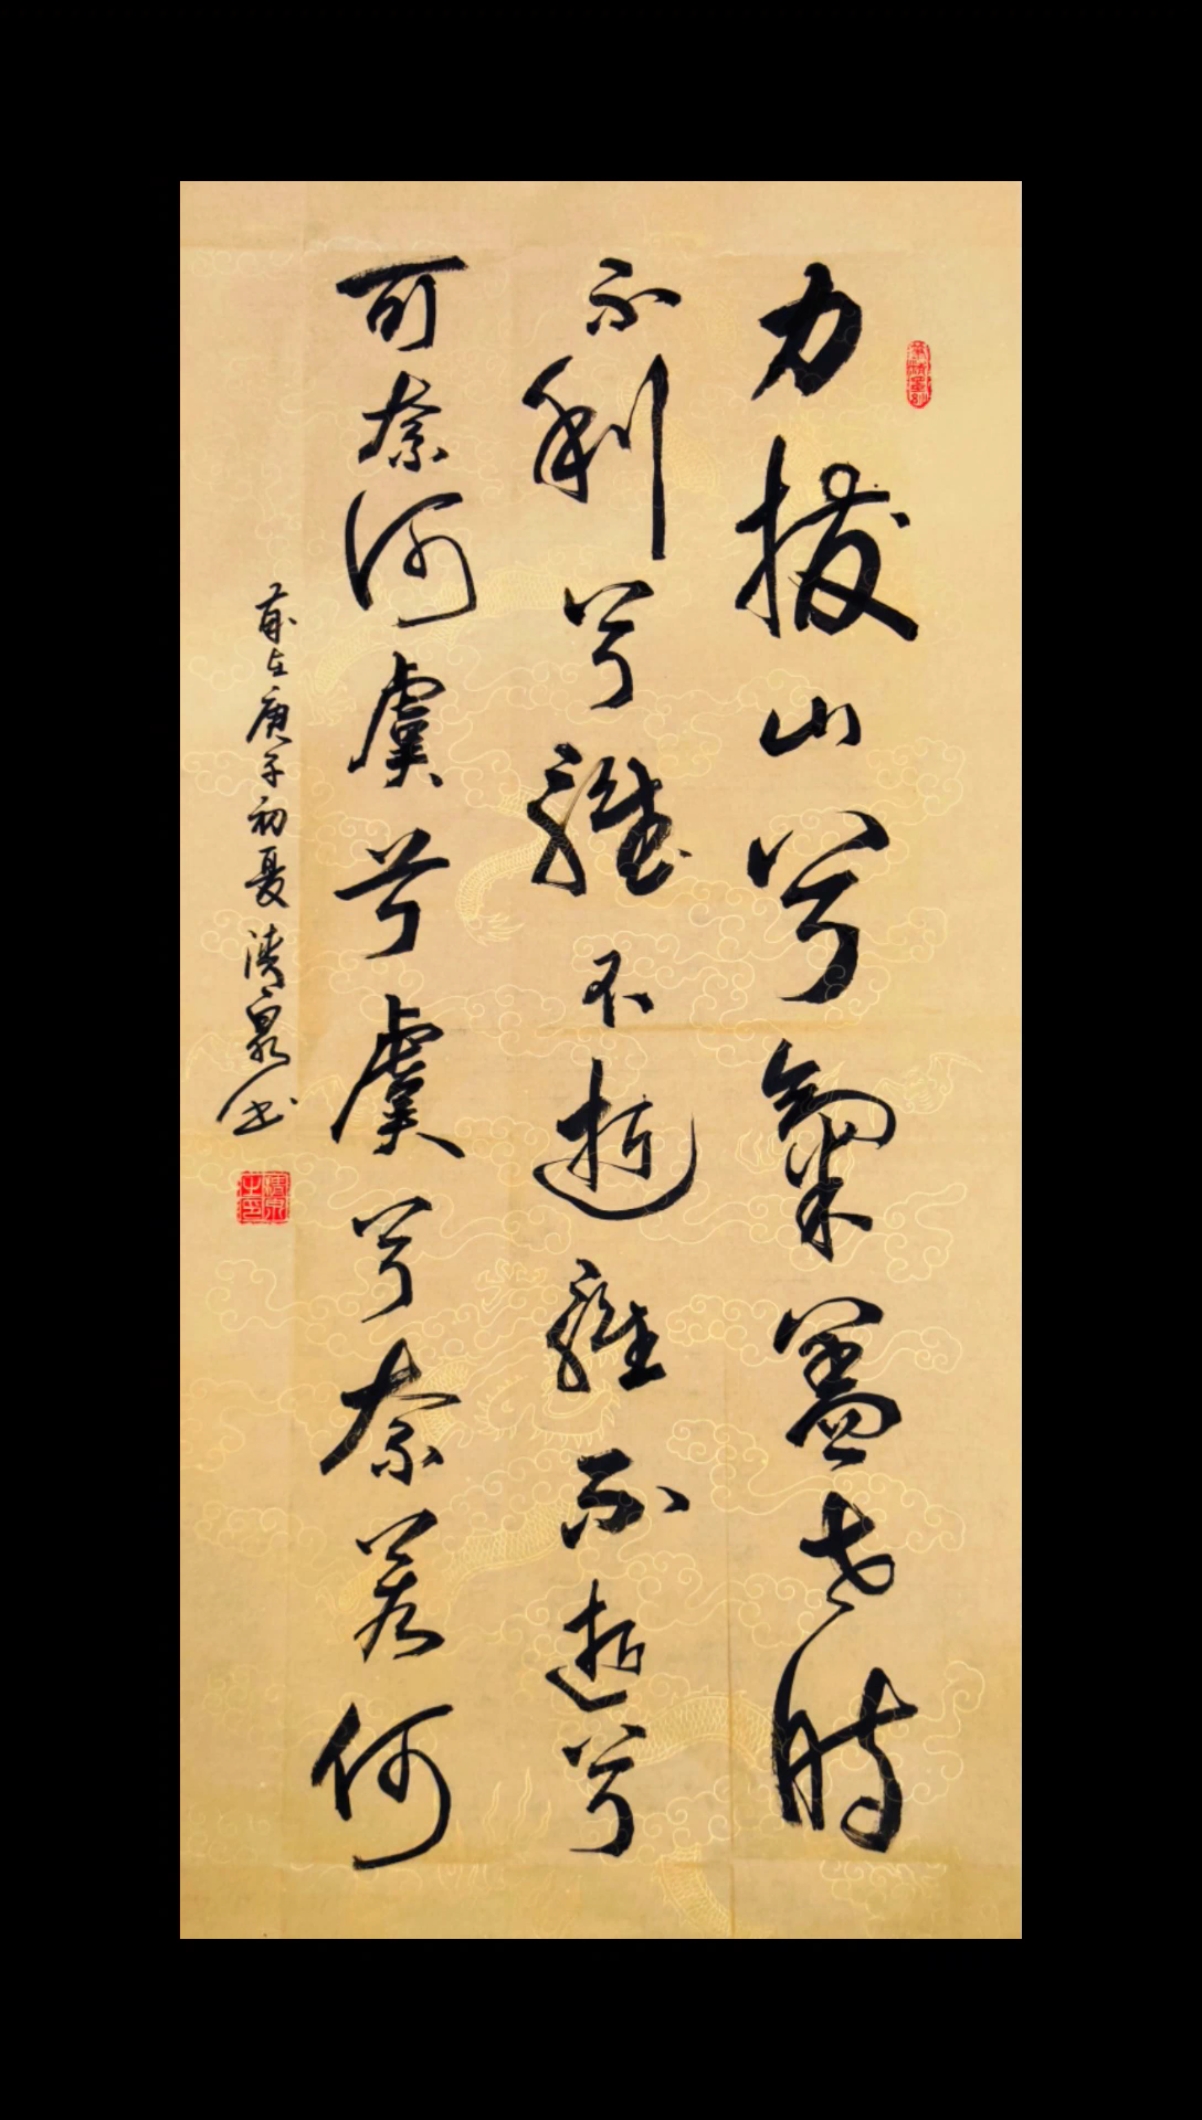 力拔山兮氣蓋世時
不利兮騅不逝騅不逝兮
可奈何虞兮虞兮奈若何
歲在庚子初夏清泉書